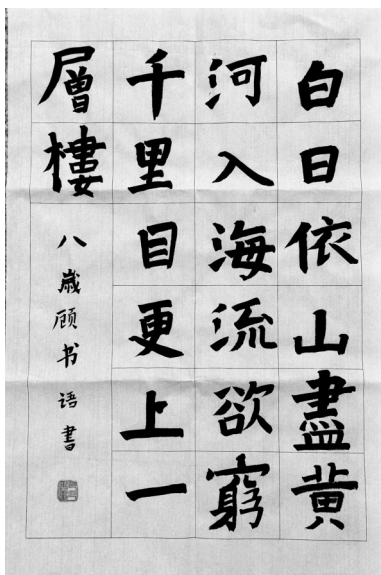 白日依山盡黄
河入海流欲窮
千里目更上一
層樓
八歲顾书语書